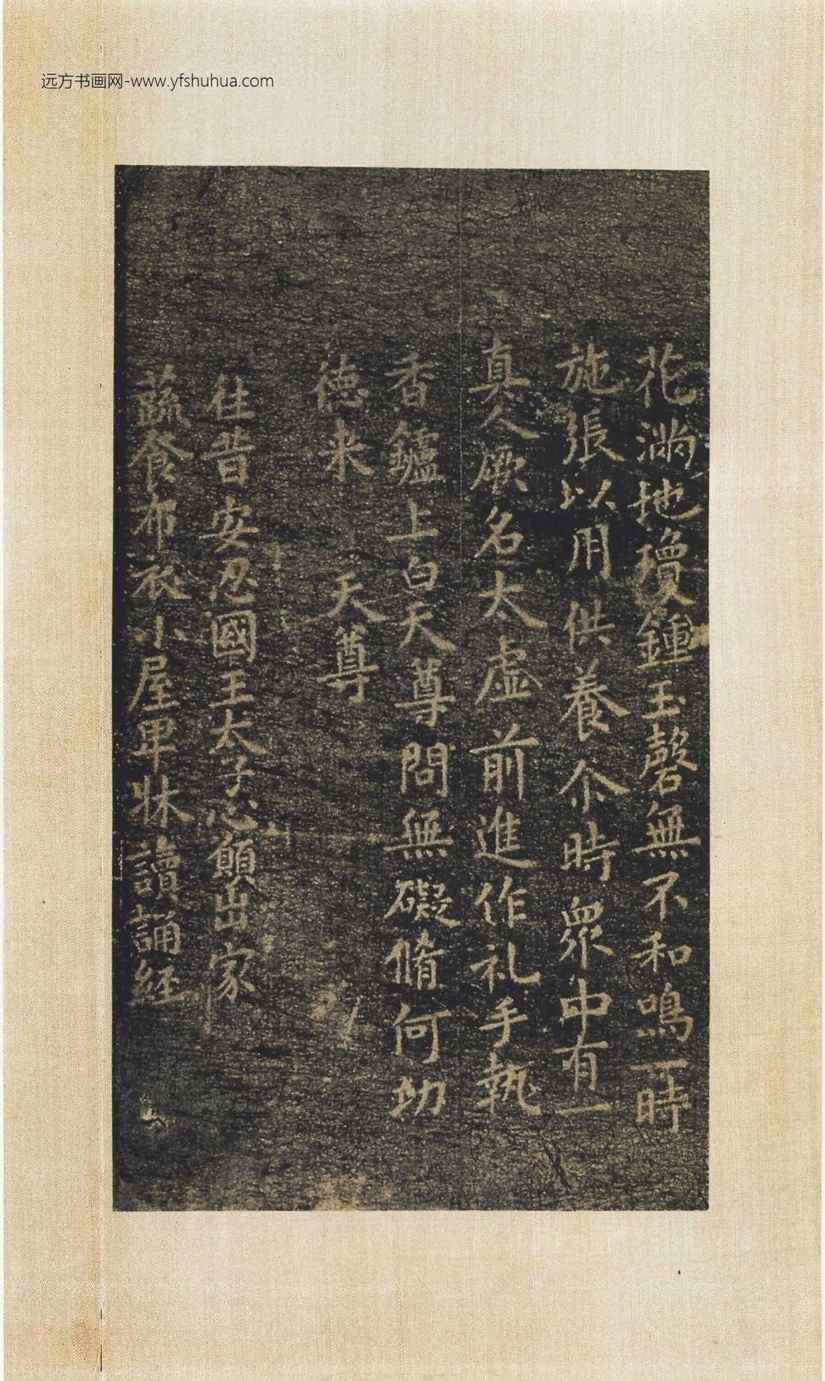 远方书画网-www.yfshuhua.com
花满地瓊鍾玉磬無不和鳴一時
施張以用供養尒時眾中有一
真人厥名太虚前進作礼手執
香鑪上白天尊問無礙脩何功
德来 天尊
往昔安忍國王太子心願出家
蔬食布衣小屋卑牀讀誦經